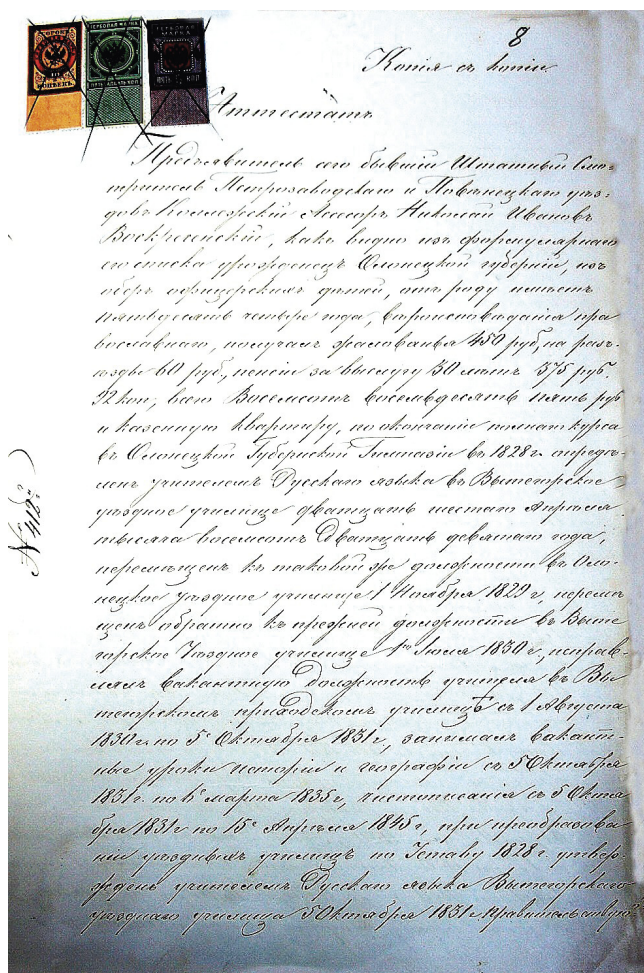 8
Копія съ копіи
Аттестатъ
Предъявитель сего бывшій Штатный Смо-
тритель Петрозаводскаго и Повѣнецкаго уѣз-
довъ Коллежскій Ассесоръ Николай Ивановъ
Воскресенскій, какъ видно изъ формулярнаго
его списка уроженецъ Олонецкой губерніи, изъ
оберъ офицерскихъ дѣтей, отъ роду имѣетъ
пятьдесятъ четыре года, вѣроисповѣданія пра
вославнаго, получалъ жалованья 450 руб, на разъ-
ѣзды 60 руб, пенсіи за выслугу 30 лѣтъ 375 руб.
92 коп, всего Восемсотъ восемьдесятъ пять руб
и казенную квартиру, по окончаніи полнаго курса
въ Олонецкой Губернской Гимназіи въ 1828 г. опредѣ-
ленъ учителемъ Русскаго языка въ Вытегорское
уѣздное училище двадцать шестаго Апрѣля
тысяча восемсотъ двадцать девятаго года,
перемѣщенъ къ таковой же должности въ Оло-
нецкое уѣздное училище 1 Ноября 1829 г, перемѣ
щенъ обратно къ прежней должности въ Выте
горское Уѣздное училище 1го Іюля 1830 г, исправ-
лялъ вакантную должность учителя въ Вы
тегорскомъ приходскомъ училищѣ съ 1 Августа
1830 г. по 5е Октября 1831 г, занималъ вакант-
ные уроки исторіи и географіи съ 5 Октября
1831 г. по 6е марта 1835 г, чистописанія съ 5 Октя
бря 1831 г по 15е Апрѣля 1845 г, при преобразова
ніи уѣздныхъ училищъ по Уставу 1828 г. утвер-
жденъ учителемъ Русскаго языка Вытегорскаго
уѣзднаго училища 5 Октября 1831 г.
№ 412
ГЕРБОВАЯ МАРКА
ГЕРБОВАЯ
МАРКА